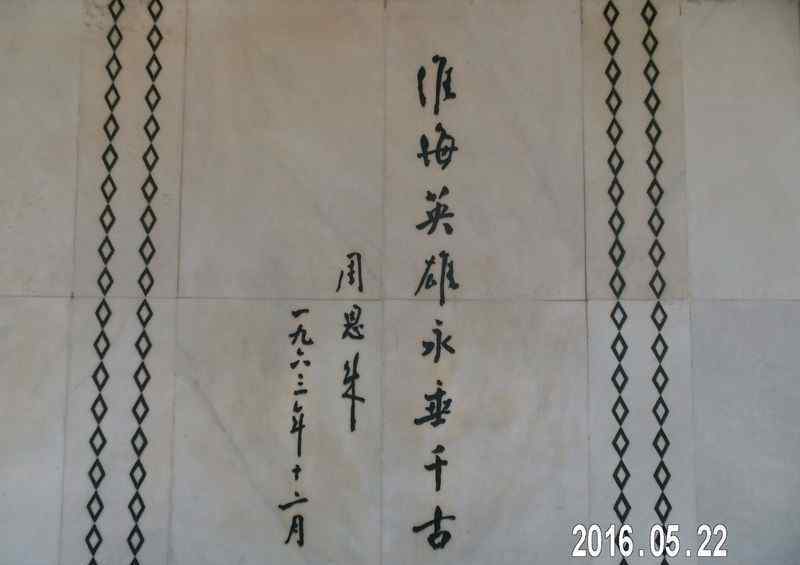 淮海英雄永垂千古
周恩来
一九六三年十二月
2016.05.22